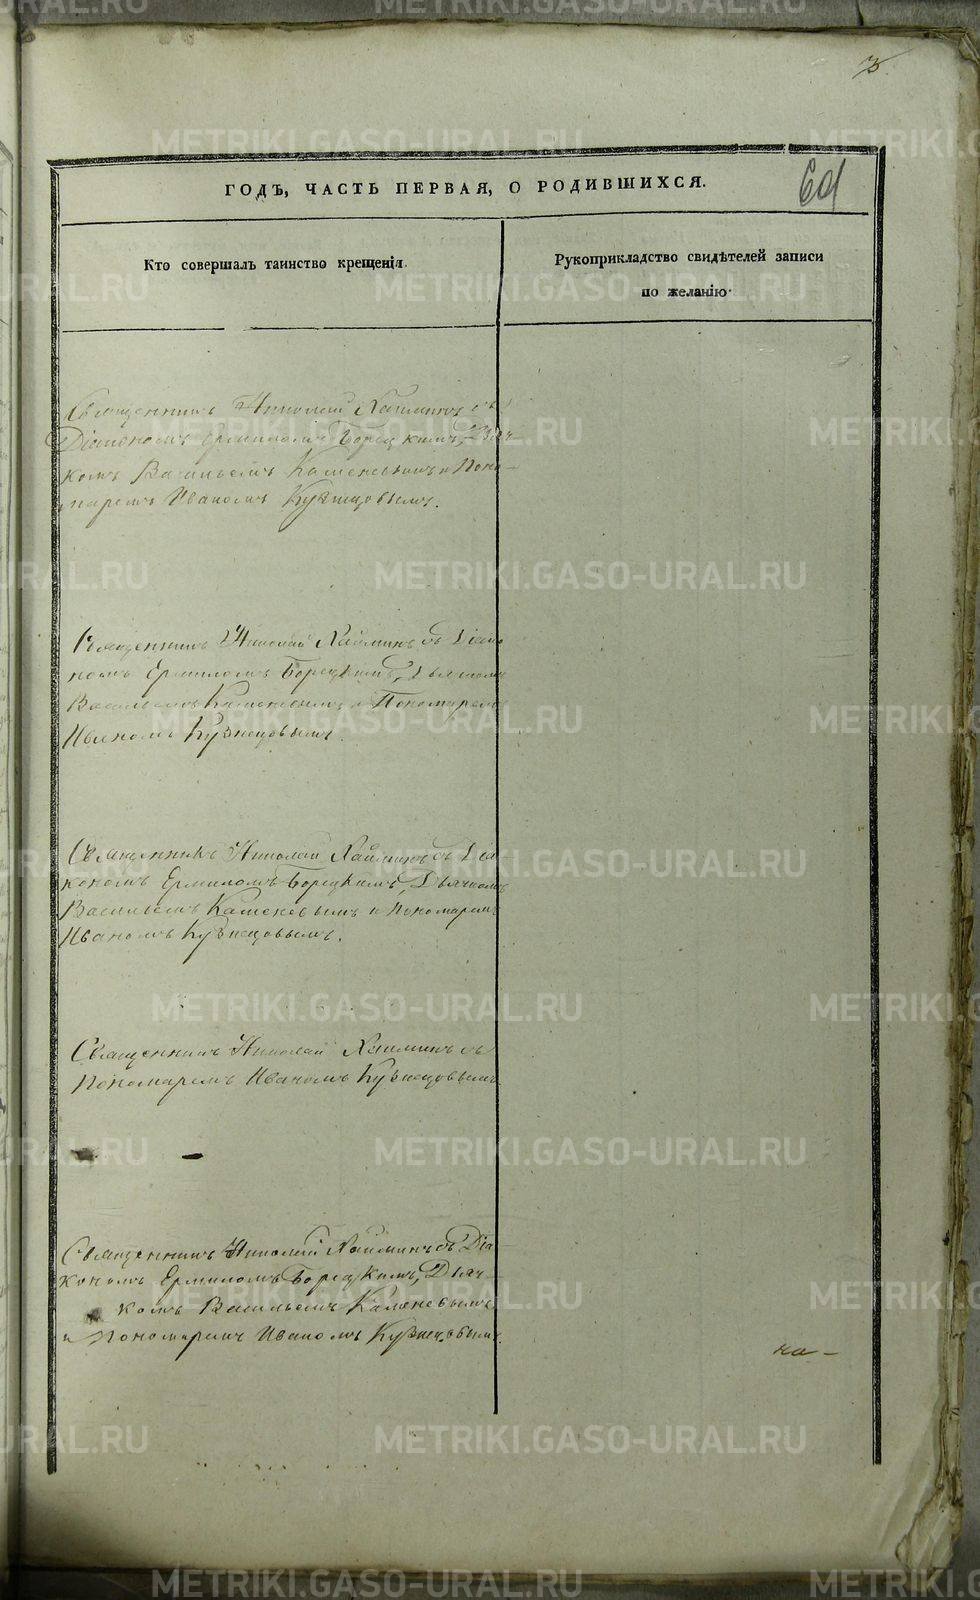 ГОДЪ, ЧАСТЬ ПЕРВАЯ, О РОДИВШИХСЯ.
Кто совершалъ таинство крещенія.
Рукоприкладство свидѣтелей записи
по желанію.
Священникъ Николай съ
Діакономъ Ермиломъ Борецкимъ, Дьяч
комъ Васильемъ Каменевымъ и Поно-
маремъ Иваномъ Кузнецовымъ.
Священникъ Николай съ Діако
номъ Ермиломъ Борецкимъ, Дьячкомъ
Васильемъ Каменевымъ и Пономаремъ
Иваномъ Кузнецовымъ.
Священникъ Николай съ Діа-
кономъ Ермиломъ Борецкимъ, Дьячкомъ
Васильемъ Каменевымъ и Пономаремъ
Иваномъ Кузнецовымъ.
Священникъ Николай съ
Пономаремъ Иваномъ Кузнецовымъ
Священникъ Николай съ Діа-
кономъ Ермиломъ Борецкимъ, Дьяч-
комъ Васильемъ Каменевымъ
и Пономаремъ Иваномъ Кузнецовымъ.
на-
METRIKI.GASO-URAL.RU